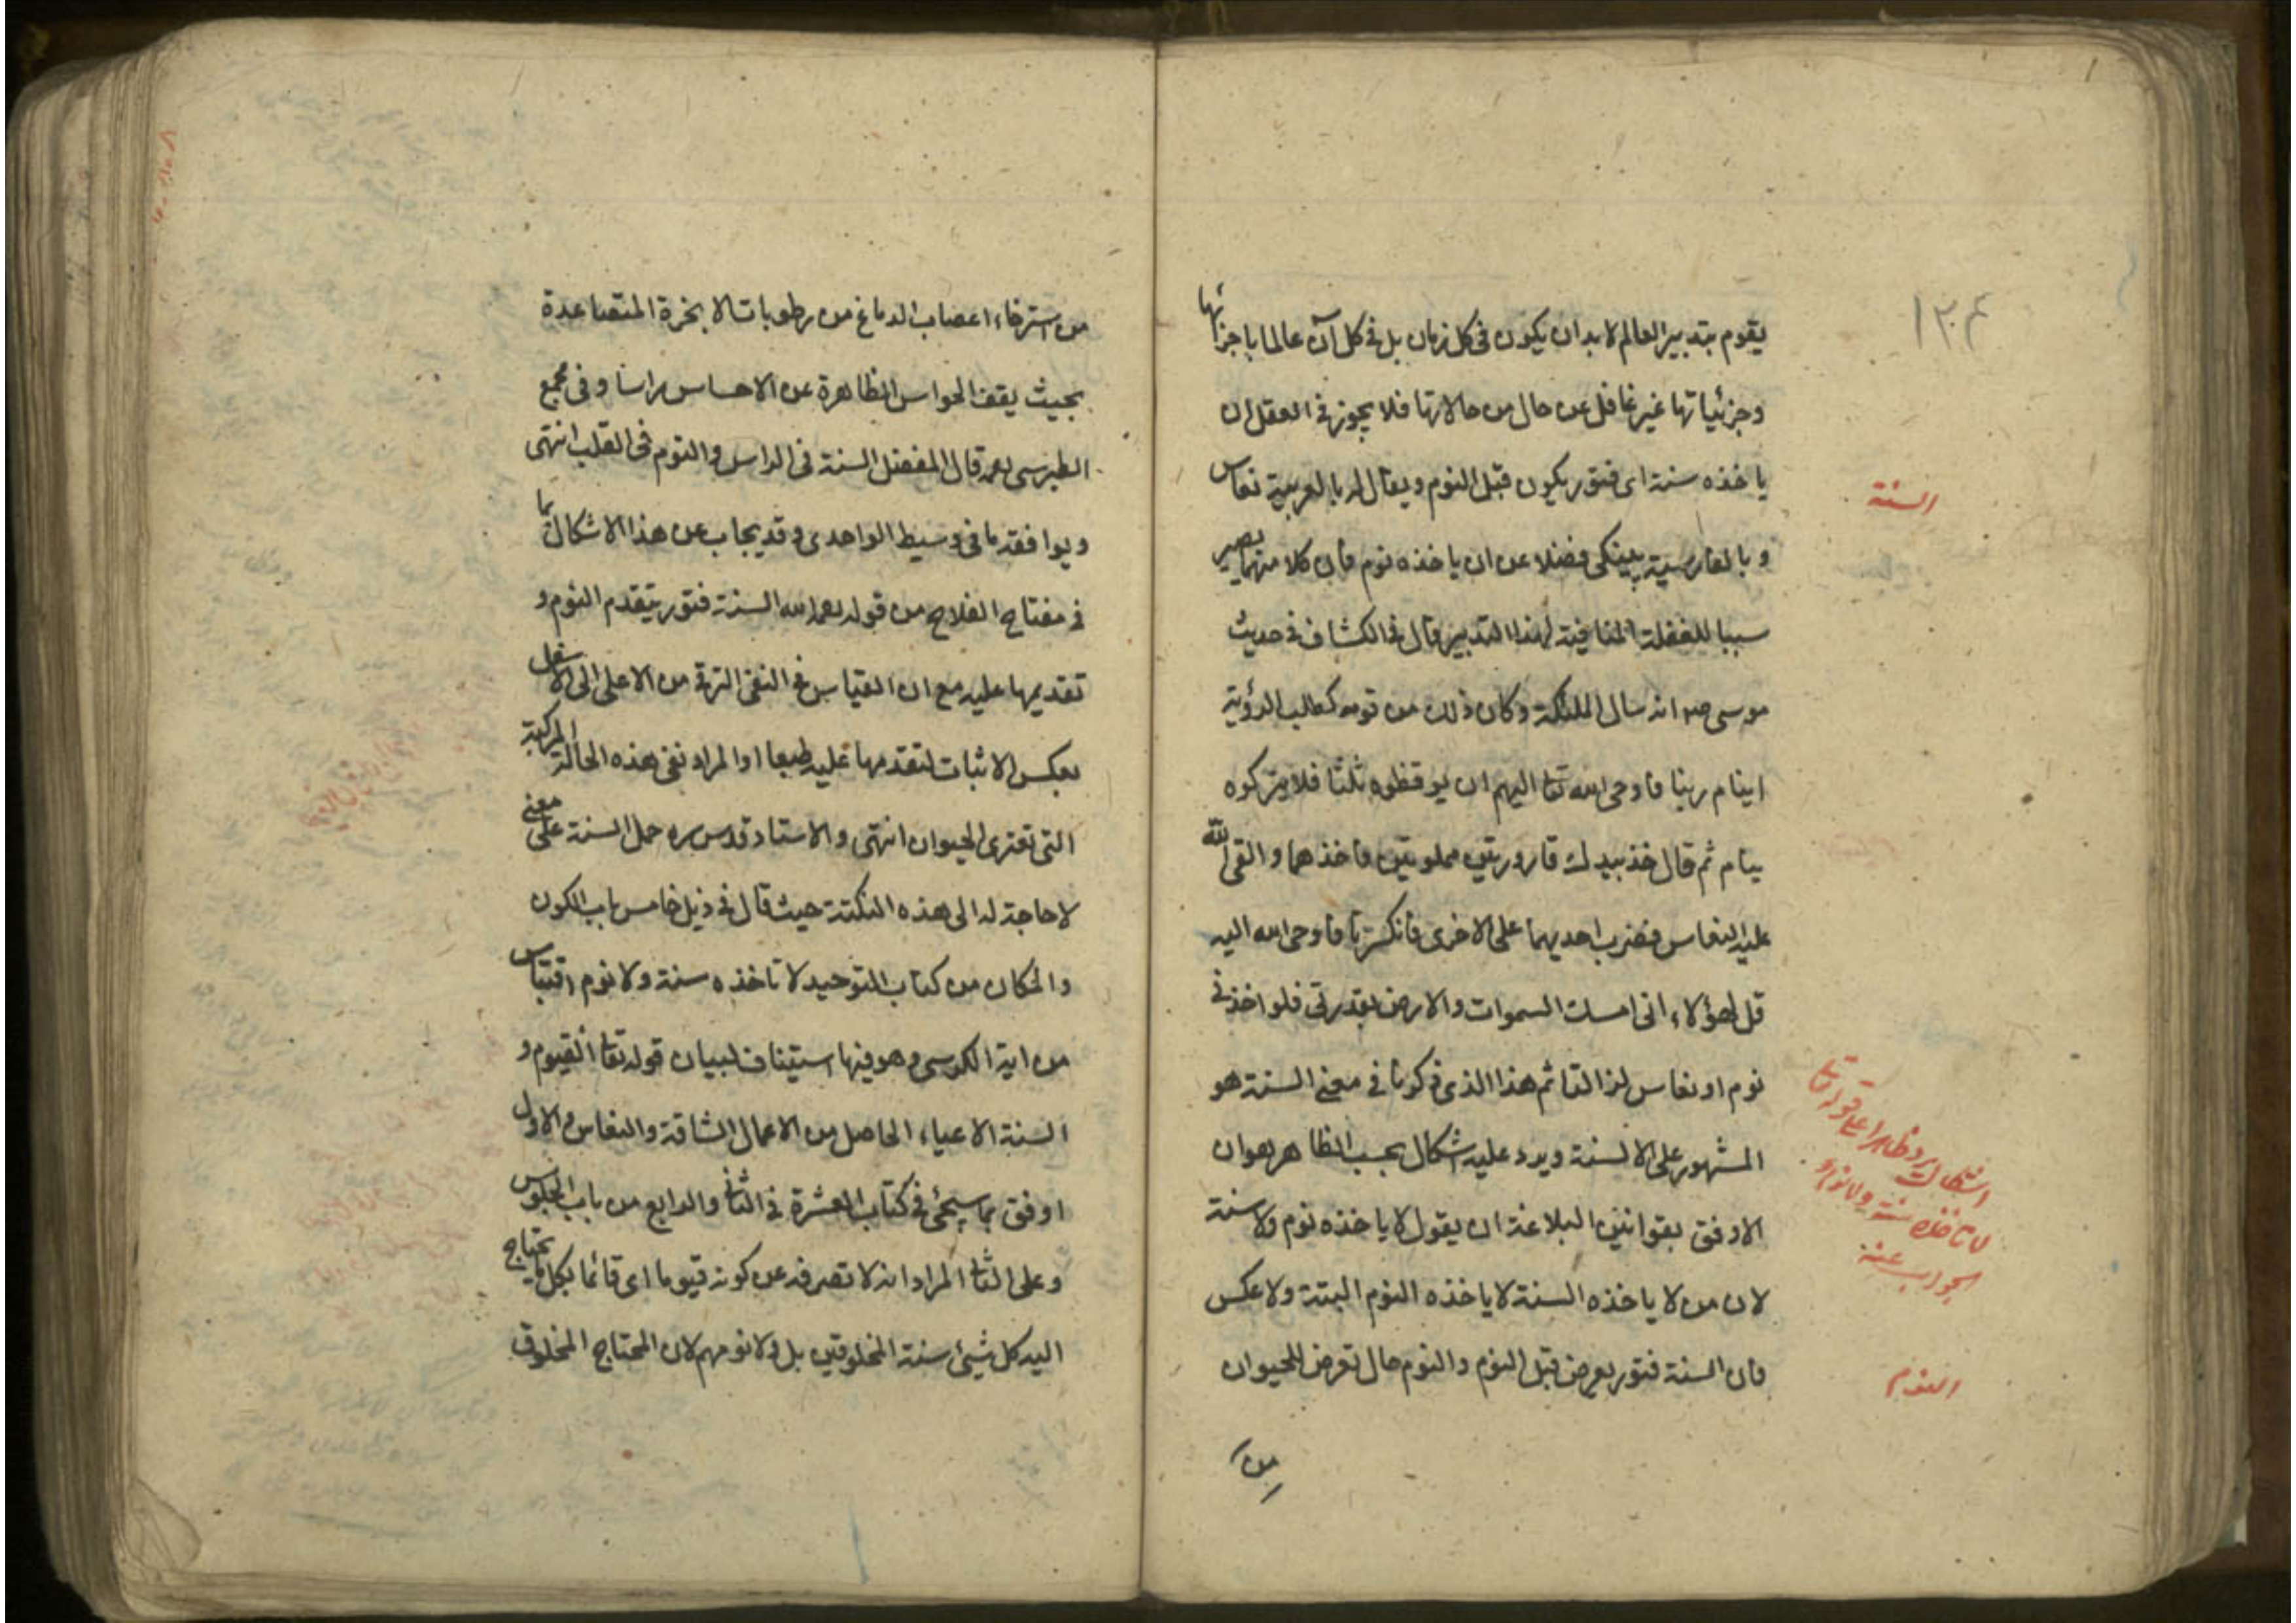 ١٣٤
يقوم بتدبير العالم لابد ان يكون فى كل زمان بل فى كل آن عالما باجزائها
وجزئياتها غير غافل عن حال من حالاتها فلا يجوز فى العقل ان
ياخذه سنة اى فتور يكون قبل النوم ويقال له بالعربية نعاس
السنة
وبالفارسية پينكى فضلا عن ان ياخذه نوم فان كلا منهما يصير
سببا للغفلة المنافية لهذا التدبير قال فى الكشاف فى حديث
موسى انه سال الملئكة وكان ذلك من قومه كطلب الرؤية
اينام ربنا فاوحى الله تعا اليهم ان يوقظوه ثلثا فلا يتركوه
ينام ثم قال خذ بيدك قارورتين مملوتين فاخذهما والقى الله
عليه النعاس فضرب احديهما على الاخرى فانكسرتا فاوحى الله اليه
قل لهؤلاء انى امسك السموات والارض بقدرتى فلو اخذنى
نوم او نعاس لزالتا ثم هذا الذى ذكرنا فى معنى السنة هو
المشهور على الالسنة ويرد عليه اشكال بحسب الظاهر هو ان
الاوفق بقوانين البلاغة ان يقول لا ياخذه نوم ولا سنة
لان من لا ياخذه السنة لا ياخذه النوم البتة ولا عكس
فان السنة فتور يعرض قبل النوم والنوم حال تعرض للحيوان
اشكال يرد ظاهرا على قوله تعا
لا تاخذه سنة ولا نوم و
الجواب عنه
النوم
من
من استرخاء اعصاب الدماغ من رطوبات الابخرة المتصاعدة
بحيث يقف الحواس الظاهرة عن الاحساس راسا وفى مجمع
الطبرسى ره قال المفضل السنة فى الراس والنوم فى القلب انتهى
ويوافقه ما فى وسيط الواحدى وقد يجاب عن هذا الاشكال بما
فى مفتاح الفلاح من قوله رحمه الله السنة فتور يتقدم النوم و
تقديمها عليه مع ان القياس فى النفى الترقى من الاعلى الى الاسفل
بعكس الاثبات لتقدمها عليه طبعا او المراد نفى هذه الحالة المركبة
التى تعترى الحيوان انتهى والاستاد قدس سره حمل السنة على معنى
لا حاجة له الى هذه النكتة حيث قال فى ذيل خامس باب الكون
والمكان من كتاب التوحيد لا تاخذه سنة ولا نوم اقتباس
من اية الكرسى وهو فيها استيناف لبيان قوله تعا القيوم و
السنة الاعياء الحاصل من الاعمال الشاقة والنعاس والاول
اوفق بما سيجئ فى كتاب العشرة فى الثانى والرابع من باب الجلوس
وعلى الثانى المراد انه لا تصرفه عن كونه قيوما اى قائما بكل ما يحتاج
اليه كل شيئ سنة المخلوقين بل ولا نومهم لان المحتاج المخلوق